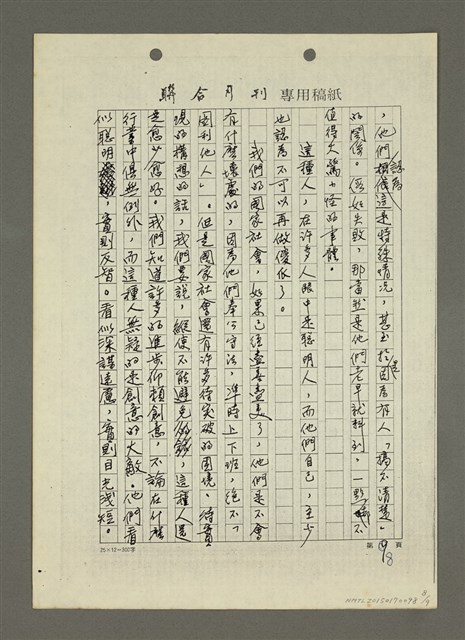 聯合月刊 專用稿紙
，他們認為這是特殊情況，甚至於是因為有人「搞不清楚」
的關係。假如失敗，那當然是他們老早就料到，一點不
值得大驚小怪的事體。
這種人，在許多人眼中是聰明人，而他們自己，至少
也認為不可以再做傻瓜了。
我們的國家社會，如果已經盡善盡美了，他們是不會
有什麼壞處的，因為他們奉公守法，準時上下班，絕不「
圖利他人」。但是國家社會還有許多待突破的困境、待實
現的構想的話，我們要說，縱使不能避免的，這種人還
是愈少愈好。我們知道許多的進步仰賴創意，不論在什麼
行業中俱無例外，而這種人無疑的是創意的大敵。他們看
似聰明，實則反智。看似深謀遠慮，實則目光淺短。
第 頁
25×12＝300字
NMTL20150170098
8/9